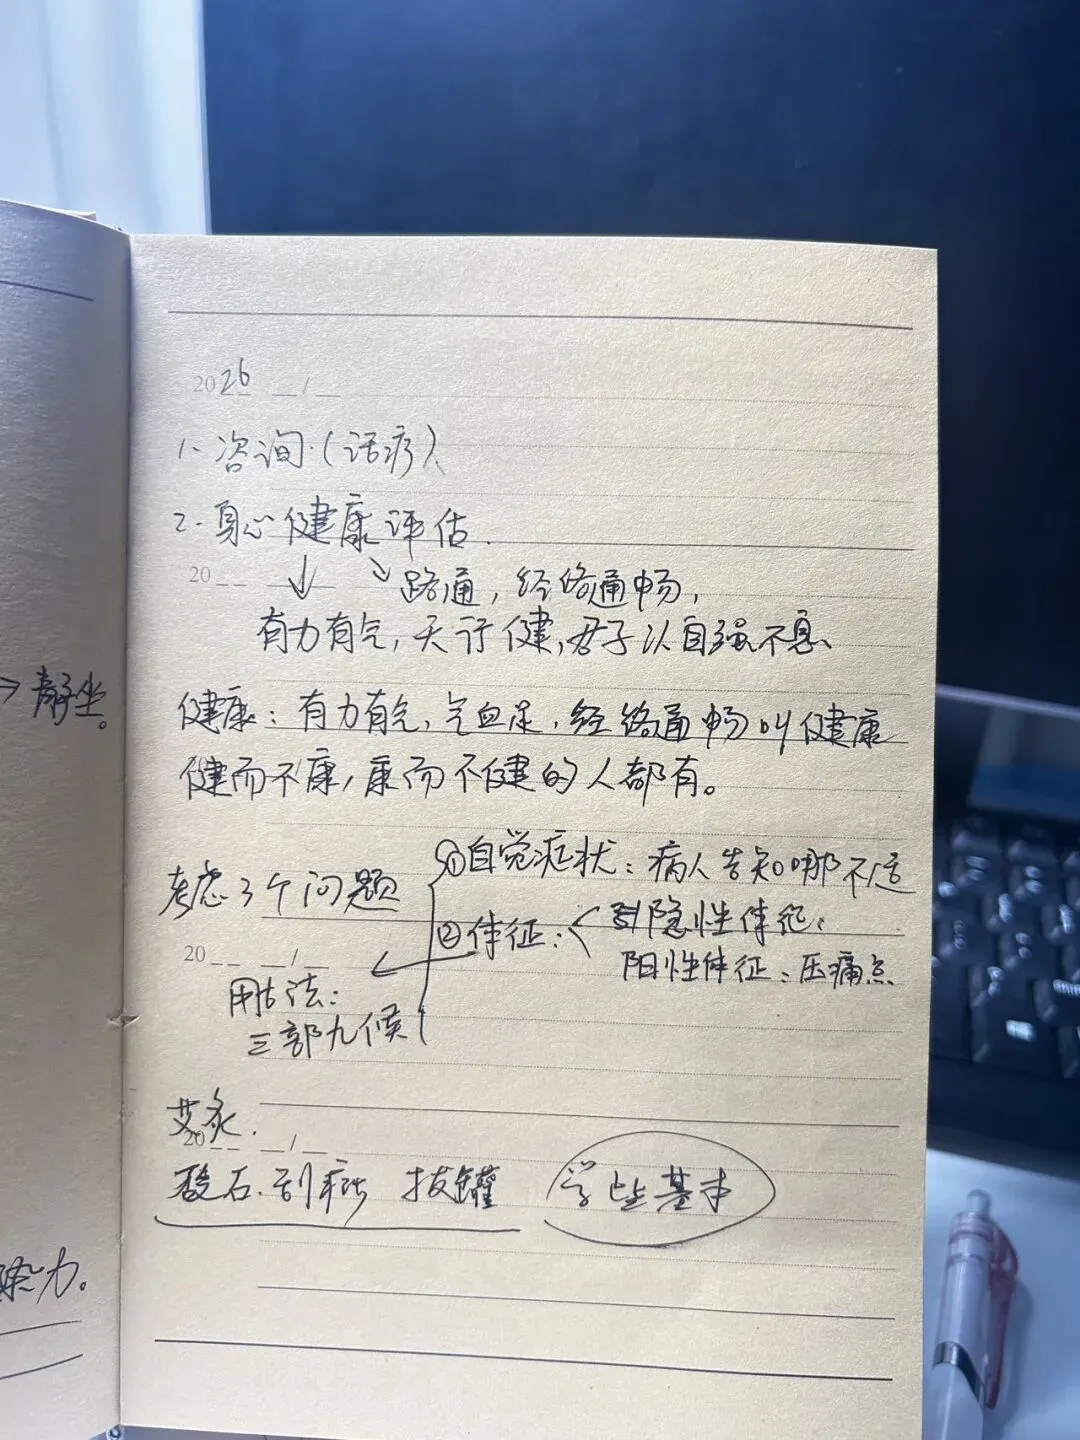 静坐。
染力。
2026 __/__
1. 咨询.(话疗)、
2. 身心健康评估.
20__
路通，经络通畅，
有力有气，天行健，君子以自强不息、
健康：有力有气，气血足，经络通畅叫健康
健而不康，康而不健的人都有。
考虑3个问题
①自觉症状：病人告知哪不适
②体征：
隐性体征：
阳性体征：压痛点
20__ __/__
用古法：
三部九候
艾灸.
20__ __/__
砭石.刮痧 拔罐
学些基本